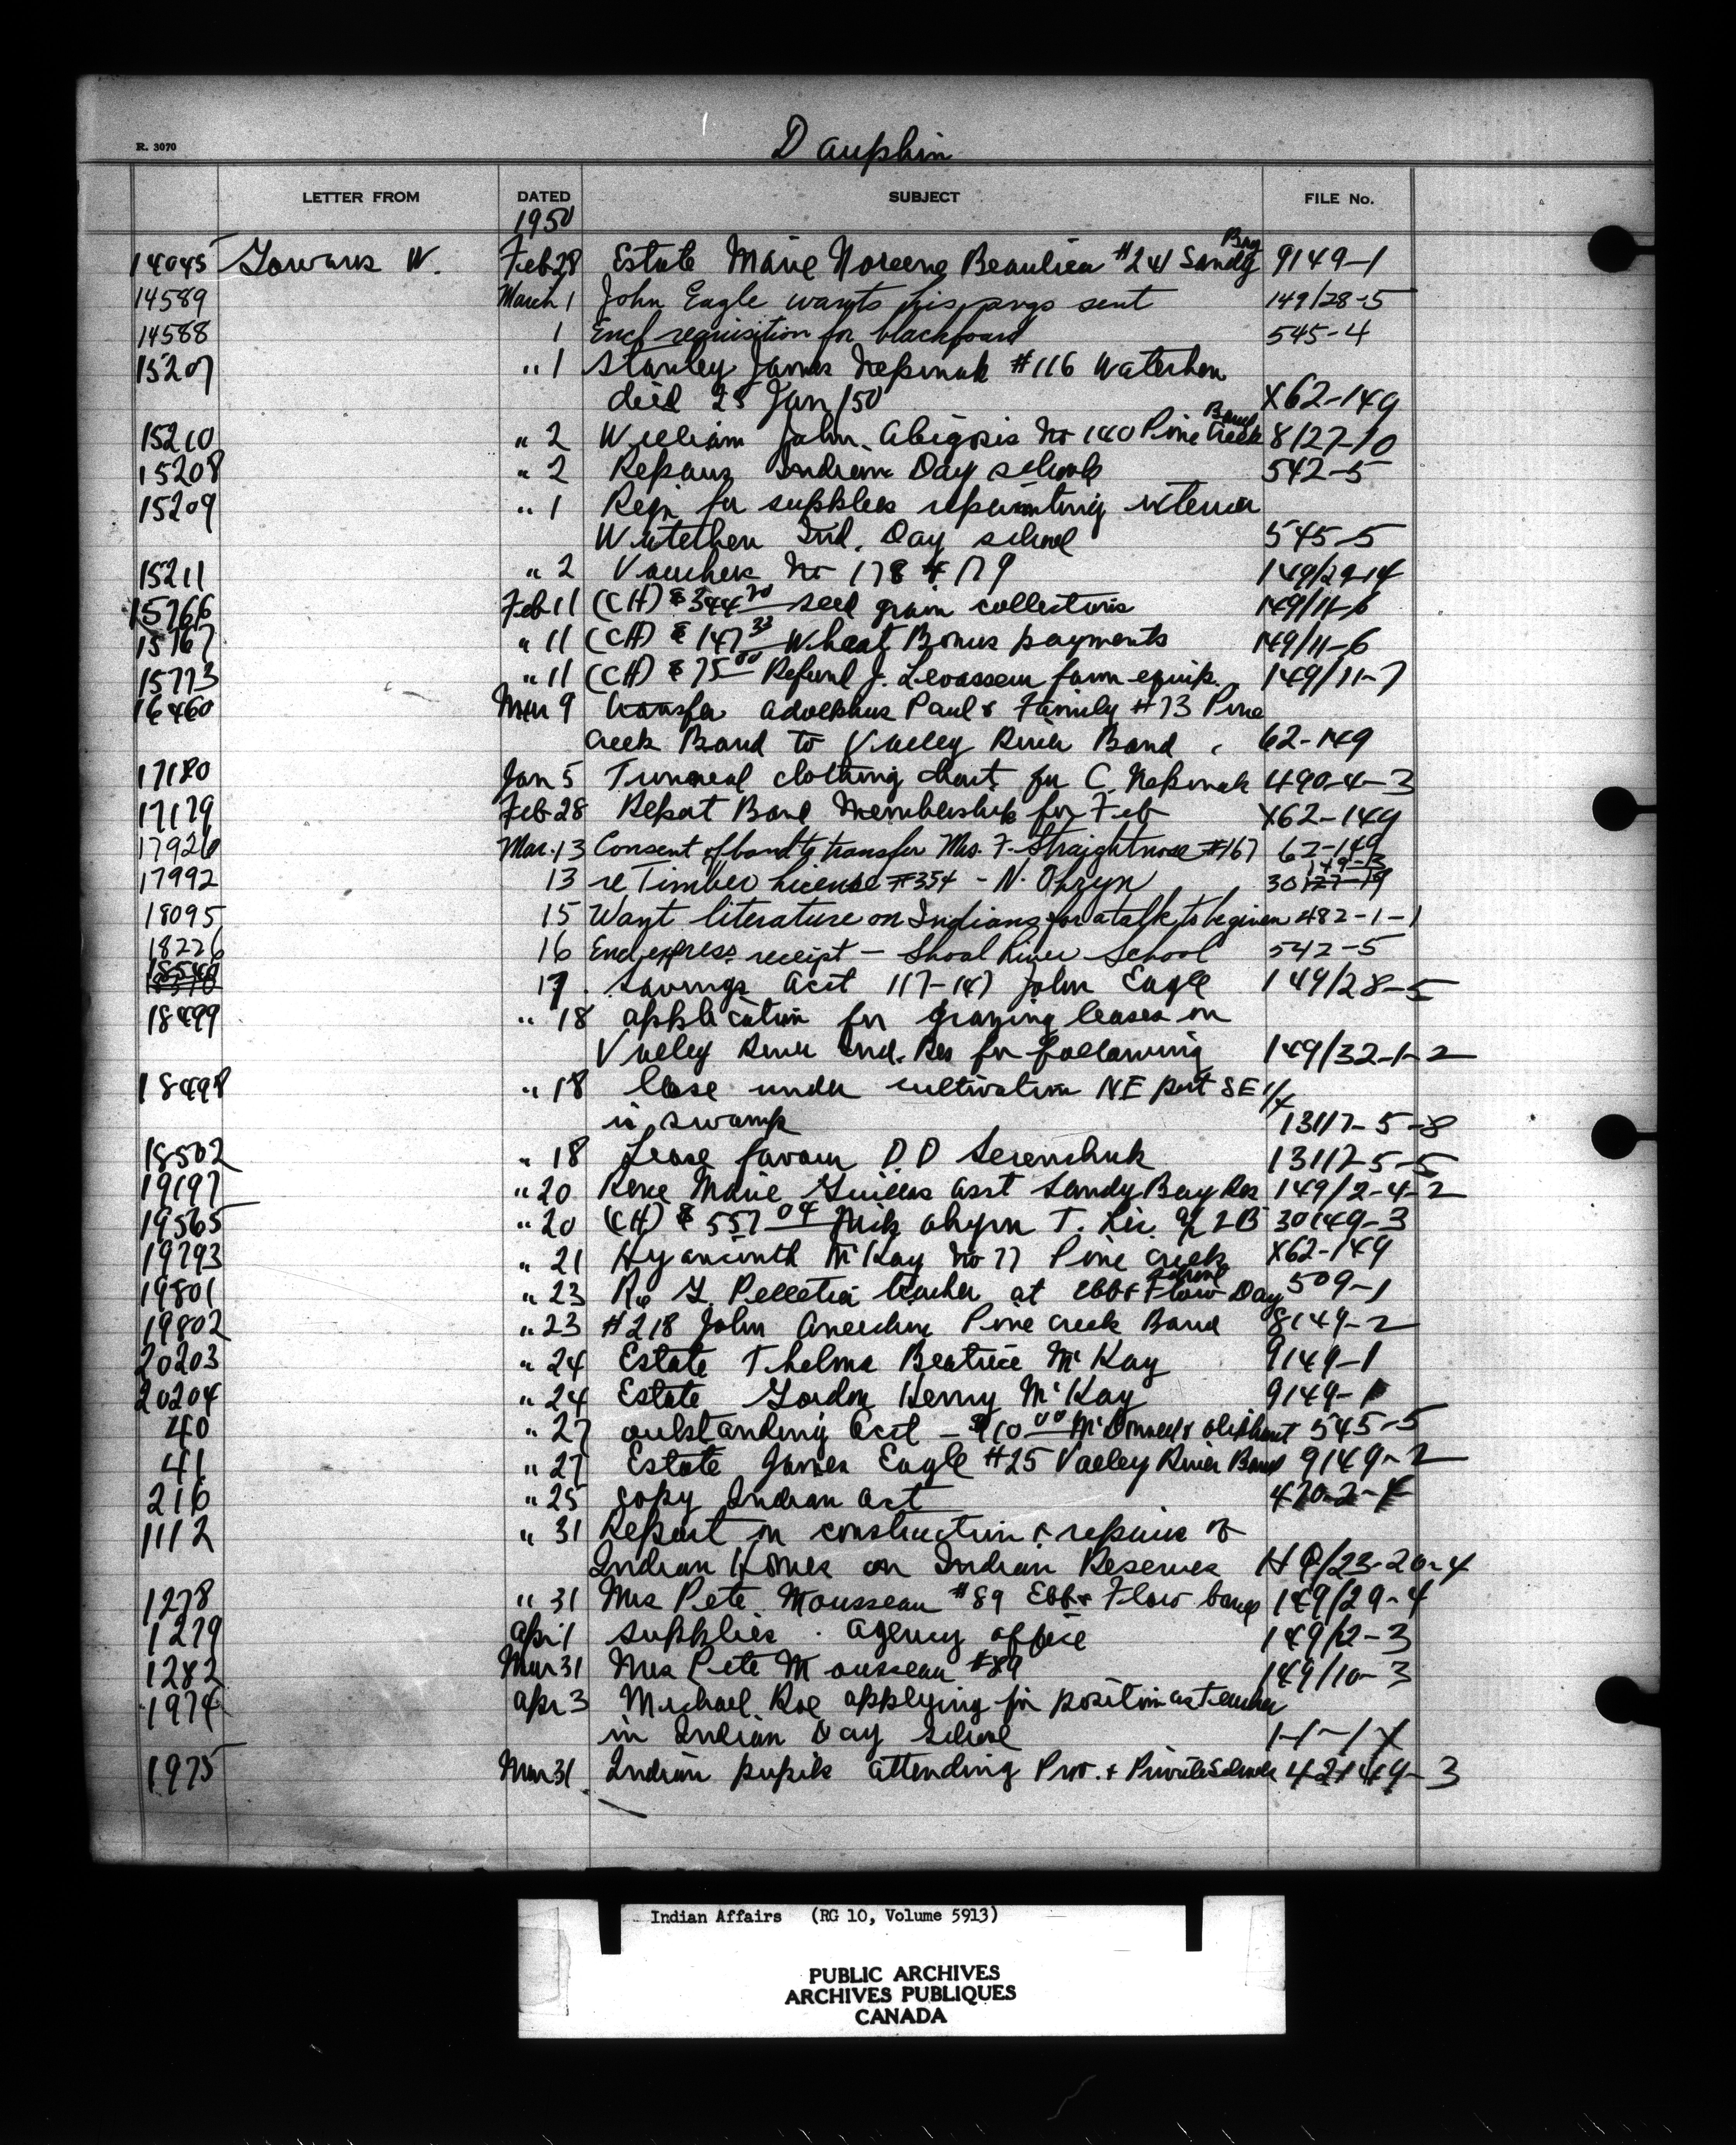 R. 3070
Dauphin
LETTER FROM DATED SUBJECT FILE No.
1950
14045 W. Feb 28 Estate Marie Noreene Beaulieu #241 Sandy Bay 9149-1
14589 March 1 John Eagle wants his svgs sent 149/28-5
14588 1 Encl requisition for blackboard 545-4
15207 " 1 Stanley James Nepinak #116 Waterhen
died 25 Jan/50 X62-149
15210 " 2 William John No 140 Pine Creek Band 8127-10
15208 " 2 Repairs Indian Day schools 542-5
15209 " 1 Reqn for supplies repainting exterior
Waterhen Ind. Day school 545-5
15211 " 2 Vouchers No 178 & 179 149/29-14
15766 Feb 11 (CH) $344.20 seed grain collections 149/11-6
15767 " 11 (CH) $147.33 Wheat Bonus payments 149/11-6
15773 " 11 (CH) $75.00 Refund J. Levasseur farm equip. 149/11-7
16460 Mar 9 transfer Adolphus Paul & Family #73 Pine
Creek Band to Valley River Band 62-149
17180 Jan 5 clothing chart for C. Nepinak 490-4-3
17179 Feb 28 Report Band Membership for Feb X62-149
17926 Mar. 13 Consent of band to transfer Mrs. F. Straightnose #167 62-149
17992 13 re Timber License #354 - N. Ohryn 30149-3
18095 15 Want literature on Indians for a talk to be given 482-1-1
18226 16 Encl express receipt - Shoal River School 542-5
18540 17 Savings Acct 117-147 John Eagle 149/28-5
18499 " 18 application for grazing leases on
Valley River Ind. Res for following 149/32-1-2
18498 " 18 lease under cultivation NE part SE 1/4
is swamp 13117-5-8
18502 " 18 Lease favour D.D Serenchuk 13117-5-5
19197 " 20 Rene Marie asst Sandy Bay Res 149/2-4-2
19565 " 20 (CH) $557.04 Nick Ohryn T. Lic. 30149-3
19793 " 21 Hyacinth McKay No 77 Pine Creek X62-149
19801 " 23 Re G. Pelletier teacher at Ebb & Flow Day School 509-1
19802 " 23 #218 John Pine Creek Band 8149-2
20203 " 24 Estate Thelma Beatrice McKay 9149-1
20204 " 24 Estate Gordon Henry McKay 9149-1
40 " 27 outstanding Acct - $10.00 545-5
41 " 27 Estate James Eagle #25 Valley River Band 9149-2
216 " 25 copy Indian Act 470-2-4
1112 " 31 Report on construction & repairs of
Indian Homes on Indian Reserves HQ/23-20-4
1278 " 31 Mrs Pete Mousseau #89 Ebb & Flow band 149/29-4
1279 Apr 1 supplies. agency office 149/12-3
1282 Mar 31 Mrs Pete Mousseau #89 149/10-3
1974 Apr 3 Michael Roe applying for position as teacher
in Indian Day School 1-1-1X
1975 Mar 31 Indian pupils attending Prov. & Private Schools 42149-3
Indian Affairs (RG 10, Volume 5913)
PUBLIC ARCHIVES
ARCHIVES PUBLIQUES
CANADA